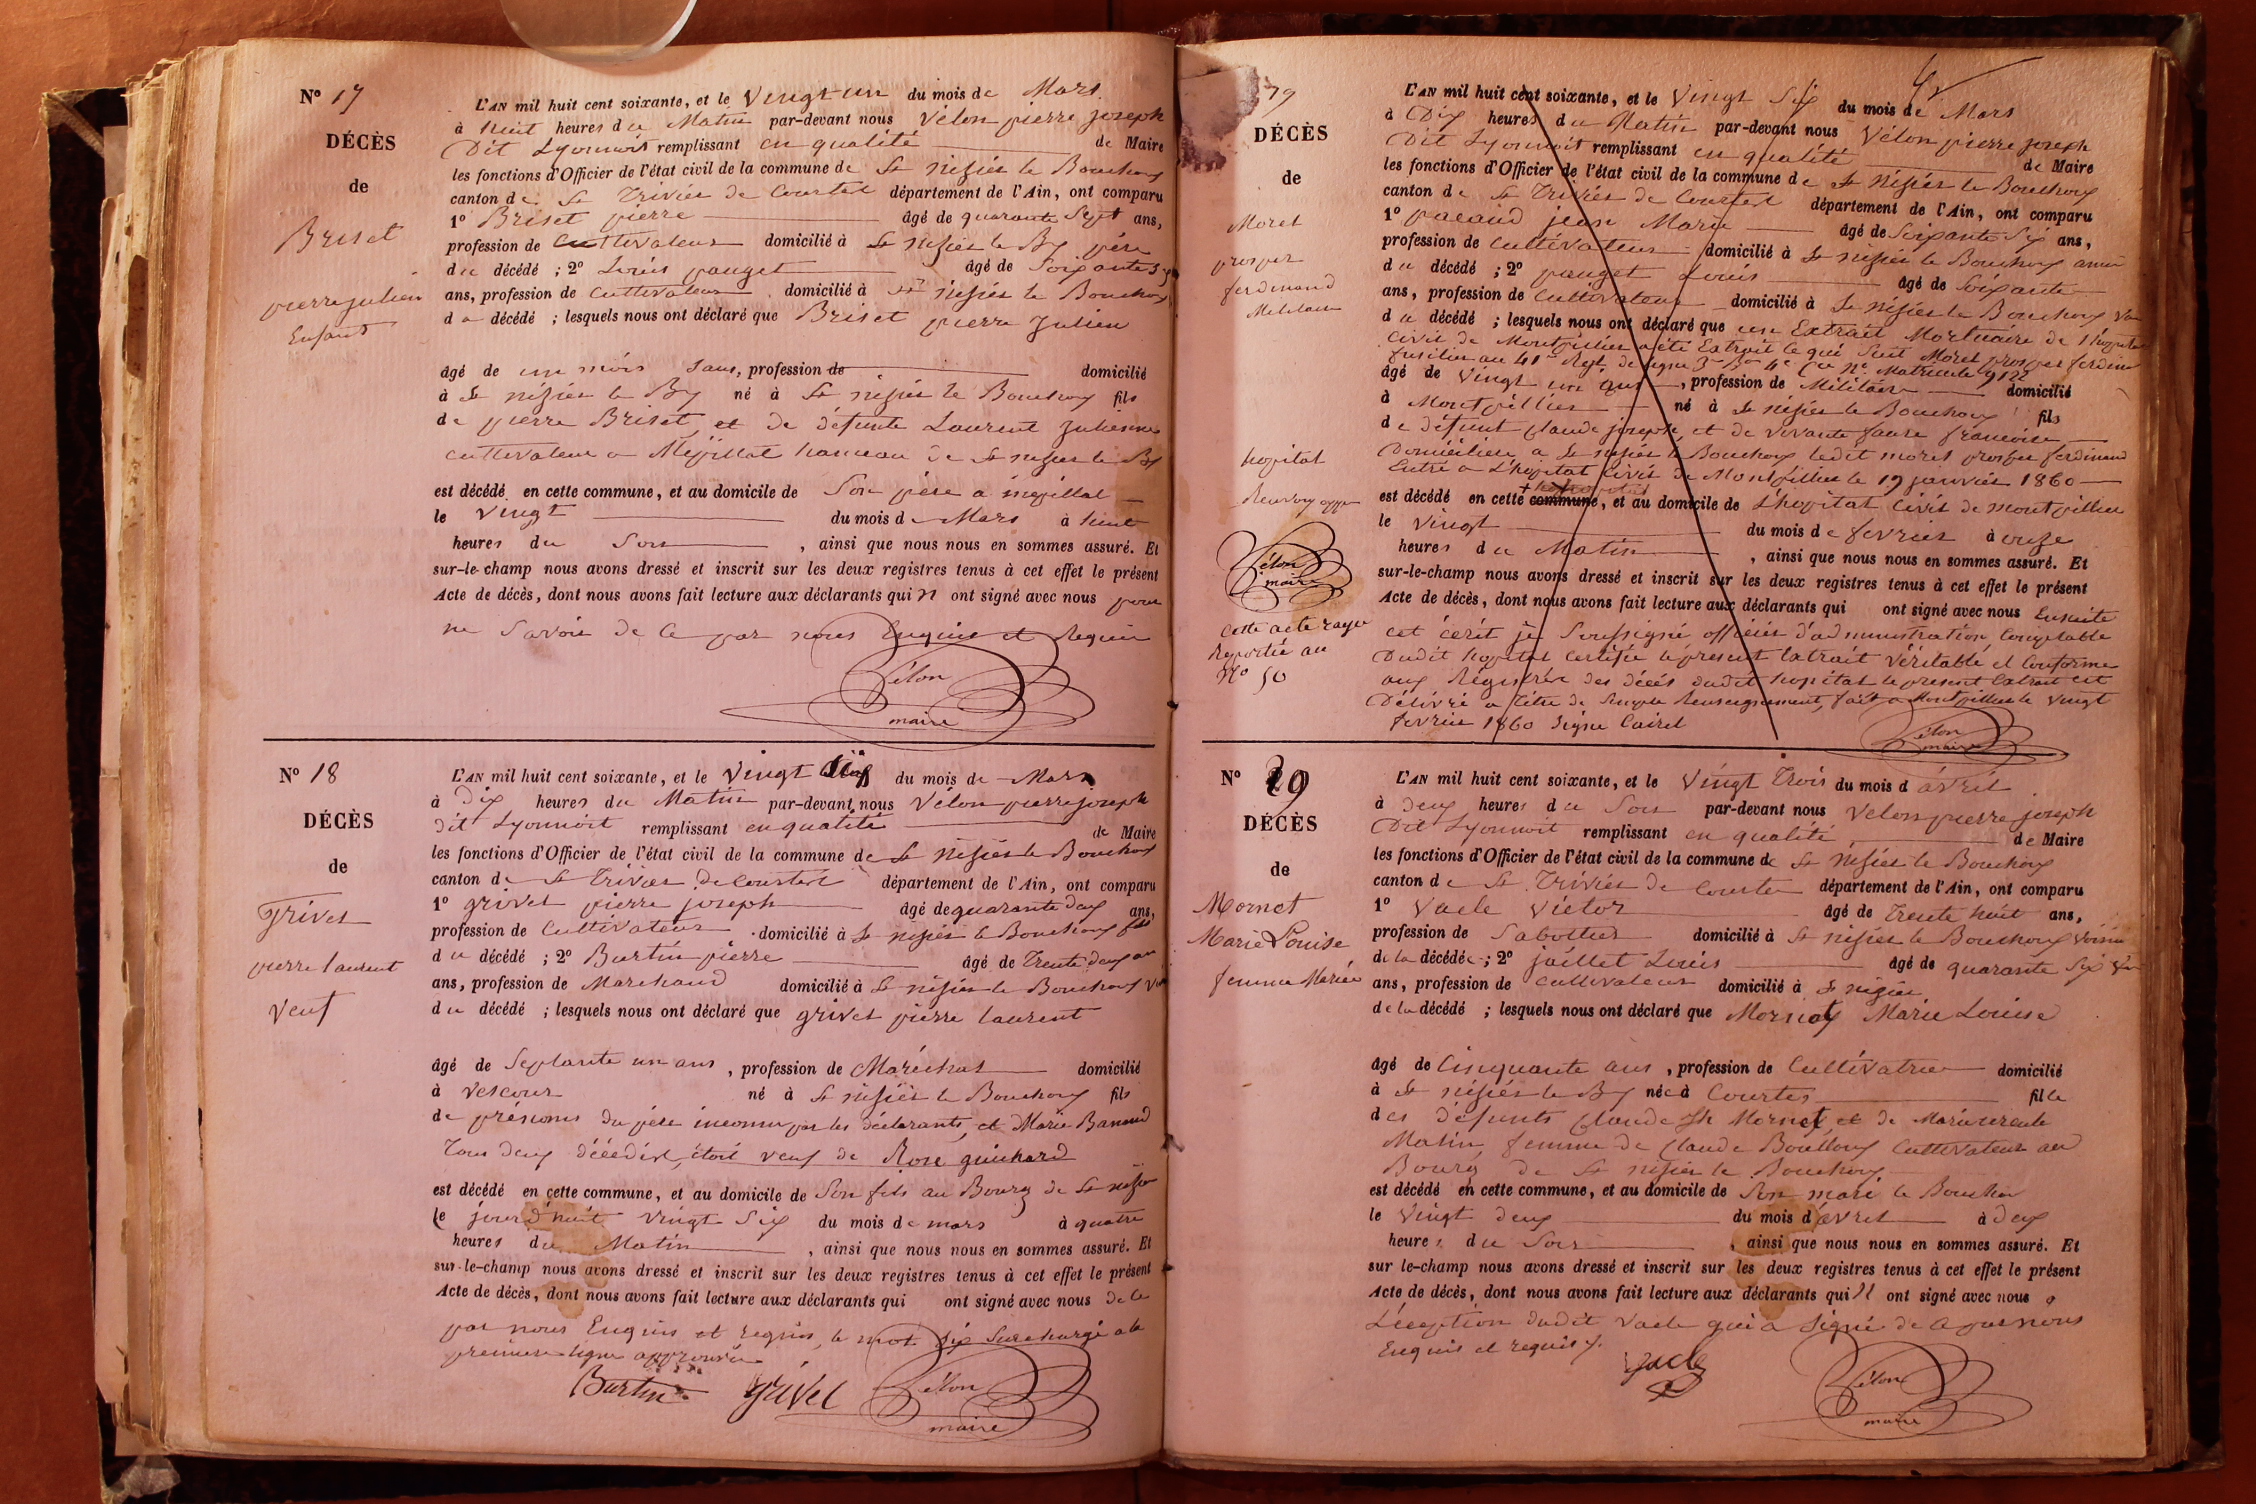 N° 17
DÉCÈS
de
Briset
pierre julien
Enfant
L'AN mil huit cent soixante, et le Vingt-un du mois de Mars
à huit heures du Matin par-devant nous Vélon pierre joseph
Dit Lyonnoit remplissant en qualité de Maire
les fonctions d'Officier de l'état civil de la commune de St Nizier le Bouchoux
canton de St Trivier de Courtes département de l'Ain, ont comparu
1° Briset pierre âgé de quarante Sept ans,
profession de Cultivateur domicilié à St nizier le Bx père
du décédé ; 2° Louis pauget âgé de Soixante
ans, profession de Cultivateur domicilié à St nizier le Bouchoux
du décédé ; lesquels nous ont déclaré que Briset pierre Julien
âgé de un mois Sans, profession de domicilié
à St nizier le Bx né à St nizier le Bouchoux fils
de pierre Briset, et de défunte Laurent Julienne
cultivateur a Mépillat hameau de St nizier le Bx
est décédé en cette commune, et au domicile de Son père a mépillat
le Vingt du mois de Mars à huit
heures du Soir, ainsi que nous nous en sommes assuré. Et
sur-le-champ nous avons dressé et inscrit sur les deux registres tenus à cet effet le présent
Acte de décès, dont nous avons fait lecture aux déclarants qui n ont signé avec nous pour
ne Savoir de Ce par nous Enquis et Requis
Vélon
maire
N° 18
DÉCÈS
de
Grivet
pierre laurent
Veuf
L'AN mil huit cent soixante, et le Vingt Six du mois de Mars
à Dix heures du Matin par-devant nous Vélon pierre joseph
dit Lyonnoit remplissant en qualité de Maire
les fonctions d'Officier de l'état civil de la commune de St Nizier le Bouchoux
canton de St Trivier de Courtes département de l'Ain, ont comparu
1° grivet pierre joseph âgé de quarante deux ans,
profession de Cultivateur domicilié à St nizier le Bouchoux fils
du décédé ; 2° Burtin pierre âgé de Trente deux
ans, profession de Marchand domicilié à St nizier le Bouchoux
du décédé ; lesquels nous ont déclaré que grivet pierre laurent
âgé de Septante un ans, profession de Maréchal domicilié
à Vescours né à St nizier le Bouchoux fils
de prénoms du père inconnu par les déclarants, et Marie Banand
Tous deux décédés, étoit veuf de Rose guichard
est décédé en cette commune, et au domicile de Son fils au Bourg de St nizier
le jourd'huit vingt Six du mois de mars à quatre
heures du Matin, ainsi que nous nous en sommes assuré. Et
sur-le-champ nous avons dressé et inscrit sur les deux registres tenus à cet effet le présent
Acte de décès, dont nous avons fait lecture aux déclarants qui ont signé avec nous de ce
par nous Enquis et requis, le mot Six Surchargé a la
premiere ligne approuvée
Burtin grivel Vélon
maire
19
DÉCÈS
de
Moret
prosper
ferdinand
Militaire
hopital
Renvoy appr
Vélon
maire
Cette acte rayer
Reportée au
N° 50
L'AN mil huit cent soixante, et le Vingt Six du mois de Mars
à Dix heures du Matin par-devant nous Vélon pierre joseph
Dit Lyonnoit remplissant en qualité de Maire
les fonctions d'Officier de l'état civil de la commune de St Nizier le Bouchoux
canton de St Trivier de Courtes département de l'Ain, ont comparu
1° pacaud jean Marie âgé de Soixante Six ans,
profession de Cultivateur domicilié à St nizier le Bouchoux ami
du décédé ; 2° pauget Louis âgé de Soixante
ans, profession de Cultivateur domicilié à St Nizier le Bouchoux
du décédé ; lesquels nous ont déclaré que un Extrait Mortuaire de l'hopital
Civil de Montpillier a été Extrait Ce qui Suit Moret prosper ferdinan
fusilier au 41e Regt de ligne 3e Bon 4e Cie N° Matricule 9122
âgé de Vingt un ans, profession de Militaire domicilié
à Montpéllier né à St nizier le Bouchoux fils
de défunt Claude joseph, et de Vivante faure francoise
Domiciliée a St nizier le Bouchoux ledit moret prosper ferdinand
Entré a L'hopital Civil de Montpillier le 19 janvier 1860
est décédé en cette commune, et au domicile de L'hopital Civil de montpillier
le Vingt du mois de fevrier à onze
heures du Matin, ainsi que nous nous en sommes assuré. Et
sur-le-champ nous avons dressé et inscrit sur les deux registres tenus à cet effet le présent
Acte de décès, dont nous avons fait lecture aux déclarants qui ont signé avec nous Ensuite
cet écrit je Soussigné officier d'administration, Comptable
Dudit hopital Certifie le présent Extrait Véritable et Conforme
aux Régistre des décès dudit hopital le present Extrait est
Délivré a titre de Simple Renseignement, fait a Montpillier le Vingt
fevrier 1860 Signe Cairel
Vélon
maire
N° 19
DÉCÈS
de
Mornet
Marie Louise
femme Mariée
L'AN mil huit cent soixante, et le Vingt Trois du mois d avril
à deux heures du Soir par-devant nous Vélon pierre joseph
Dit Lyonnoit remplissant en qualité de Maire
les fonctions d'Officier de l'état civil de la commune de St Nizier le Bouchoux
canton de St Trivier de Courtes département de l'Ain, ont comparu
1° Vacle Victor âgé de Trente huit ans,
profession de Sabottier domicilié à St nizier le Bouchoux Voisin
de la décédée ; 2° jaillet Louis âgé de quarante Six
ans, profession de Cultivateur domicilié à St nizier
de la décédé ; lesquels nous ont déclaré que Mornet Marie Louise
âgé de Cinquante ans, profession de Cultivatrice domicilié
à St nizier le Bx née à Courtes fille
des défunts Claude Jh Mornet, et de Marie
Matin, femme de Claude Boulloux Cultivateur au
Bourg de St nizier le Bouchoux
est décédé en cette commune, et au domicile de Son mari le Bouchoux
le Vingt deux du mois d'avril à deux
heures du Soir, ainsi que nous nous en sommes assuré. Et
sur le-champ nous avons dressé et inscrit sur les deux registres tenus à cet effet le présent
Acte de décès, dont nous avons fait lecture aux déclarants qui n ont signé avec nous a
L'éxeption dudit Vacle qui a Signé de Ce par nous
Enquis et requis
Vacle
Vélon
maire